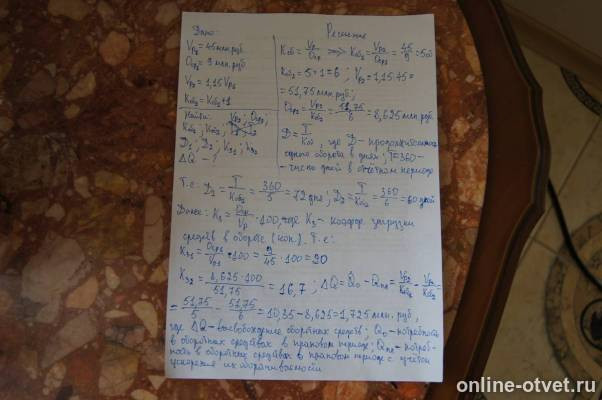 Дано:
Vр₁ = 45 млн.руб
Оср₁ = 9 млн.руб
Vр₂ = 1,15 Vр₁
Kоб₂ = Kоб₁ + 1
Найти:
Kоб₁; Kоб₂;
D₁; D₂; Kз₁; Kз₂
ΔQ - ?
Решение
Kоб = Vр/Оср => Kоб₁ = Vр₁/Оср₁ = 45/9 = 5об
Kоб₂ = 5 + 1 = 6 ; Vр₂ = 1,15·45 =
= 51,75 млн.руб;
Оср₂ = Vр₂/Kоб₂ = 51,75/6 = 8,625 млн.руб.
D = T/Kоб, где D - продолжительность
одного оборота в днях; T = 360 -
- число дней в отчетном периоде
Т.е: D₁ = T/Kоб₁ = 360/5 = 72 дня; D₂ = T/Kоб₂ = 360/6 = 60 дней
Далее: Kз = Оср/Vр · 100, где Kз - коэфф. загрузки
средств в обороте (коп.). Т.е:
Kз₁ = Оср₁/Vр₁ · 100 = 9/45 · 100 = 20
Kз₂ = 8,625·100/51,75 = 16,7 ; ΔQ = Q₀ - Qпл = Vр₂/Kоб₁ - Vр₂/Kоб₂ =
= 51,75/5 - 51,75/6 = 10,35 - 8,625 = 1,725 млн. руб,
где ΔQ - высвобождение оборотных средств; Q₀ - потребность
в оборотных средствах в плановом периоде; Qпл - потреб-
ность в оборотных средствах в плановом периоде с учетом
ускорения их оборачиваемости
online-otvet.ru